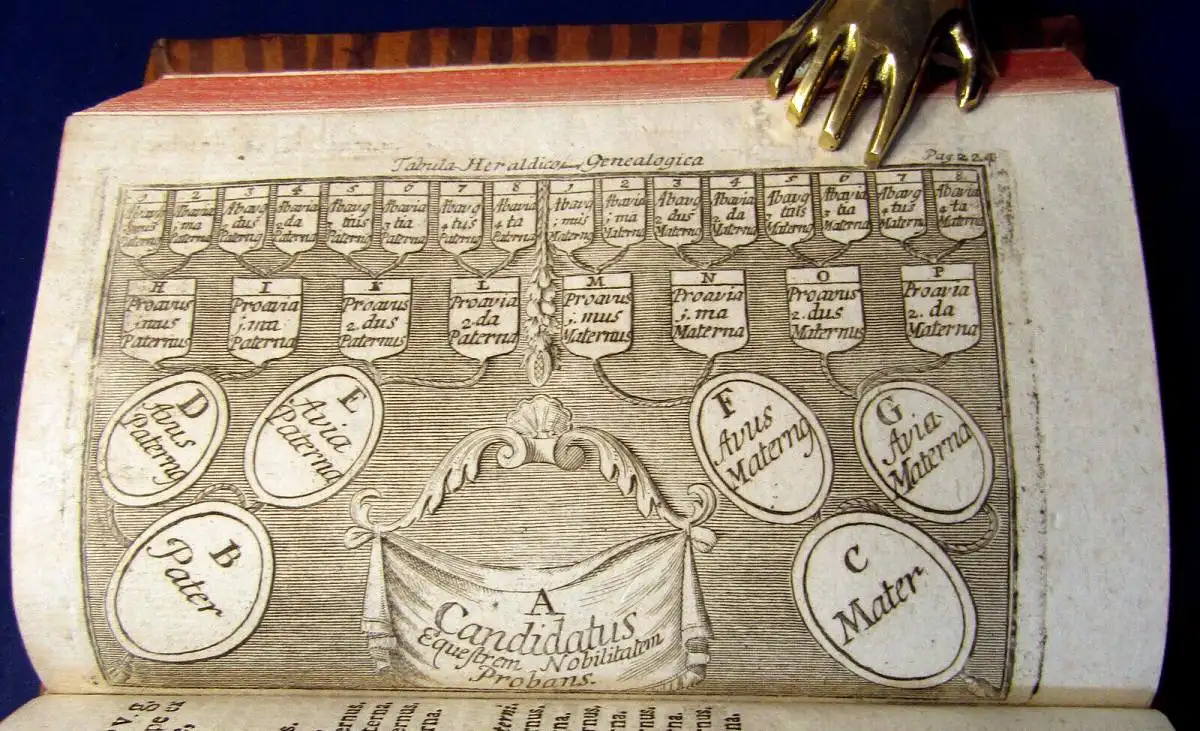 Tabula Heraldico Genealogica
Pag 224
1 2 3 4 5 6 7 8 1 2 3 4 5 6 7 8
Abavia
1.ma
Paterna
Abavg
2 dus
Paterng
Abavia
2 da
Paterna
Abavg
3 tius
Paterng
Abavia
3 tia
Paterna
Abavg
4 tus
Paterng
Abavia
4 ta
Paterna
Abavg
j.mus
Materng
Abavia
j.ma
Materna
Abavg
2 dus
Materng
Abavia
2 da
Materna
Abavg
3 tius
Materng
Abavia
3 tia
Materna
Abavg
4 tus
Materng
Abavia
4 ta
Materna
H
Proavus
j.mus
Paternus
I
Proavia
j.ma
Paterna
K
Proavus
2.dus
Paternus
L
Proavia
2.da
Paterna
M
Proavus
j.mus
Maternus
N
Proavia
j.ma
Materna
O
Proavus
2.dus
Maternus
P
Proavia
2.da
Materna
D
Avus
Paterng
E
Avia
Paterna
F
Avus
Materng
G
Avia
Materna
B
Pater
C
Mater
A
Candidatus
Equestrem Nobilitatem
Probans.